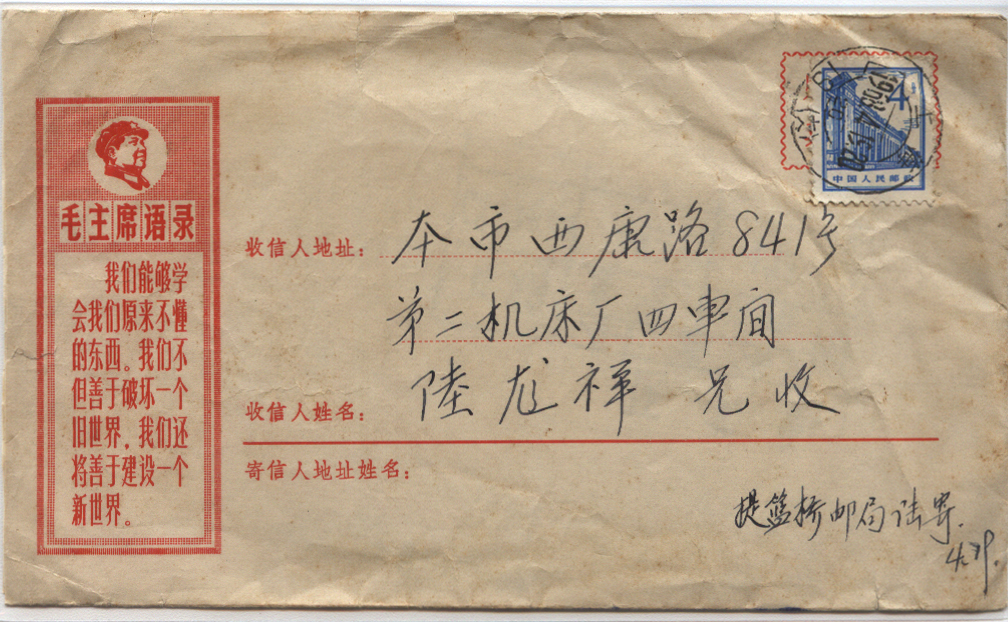 毛主席语录
我们能够学
会我们原来不懂
的东西。我们不
但善于破坏一个
旧世界,我们还
将善于建设一个
新世界。
4
中国人民邮政
收信人地址:本市西康路841号
第二机床厂四車间
收信人姓名:陸龙祥 兄收
寄信人地址姓名:
提篮桥邮局陆寄.